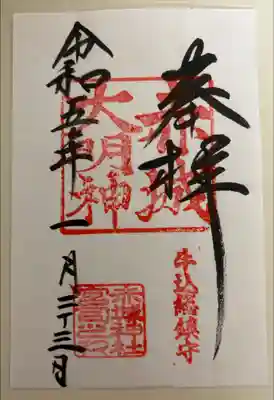 奉拝
赤城
大明神
牛込総鎮守
赤城神社
令和五年一
月二十三日